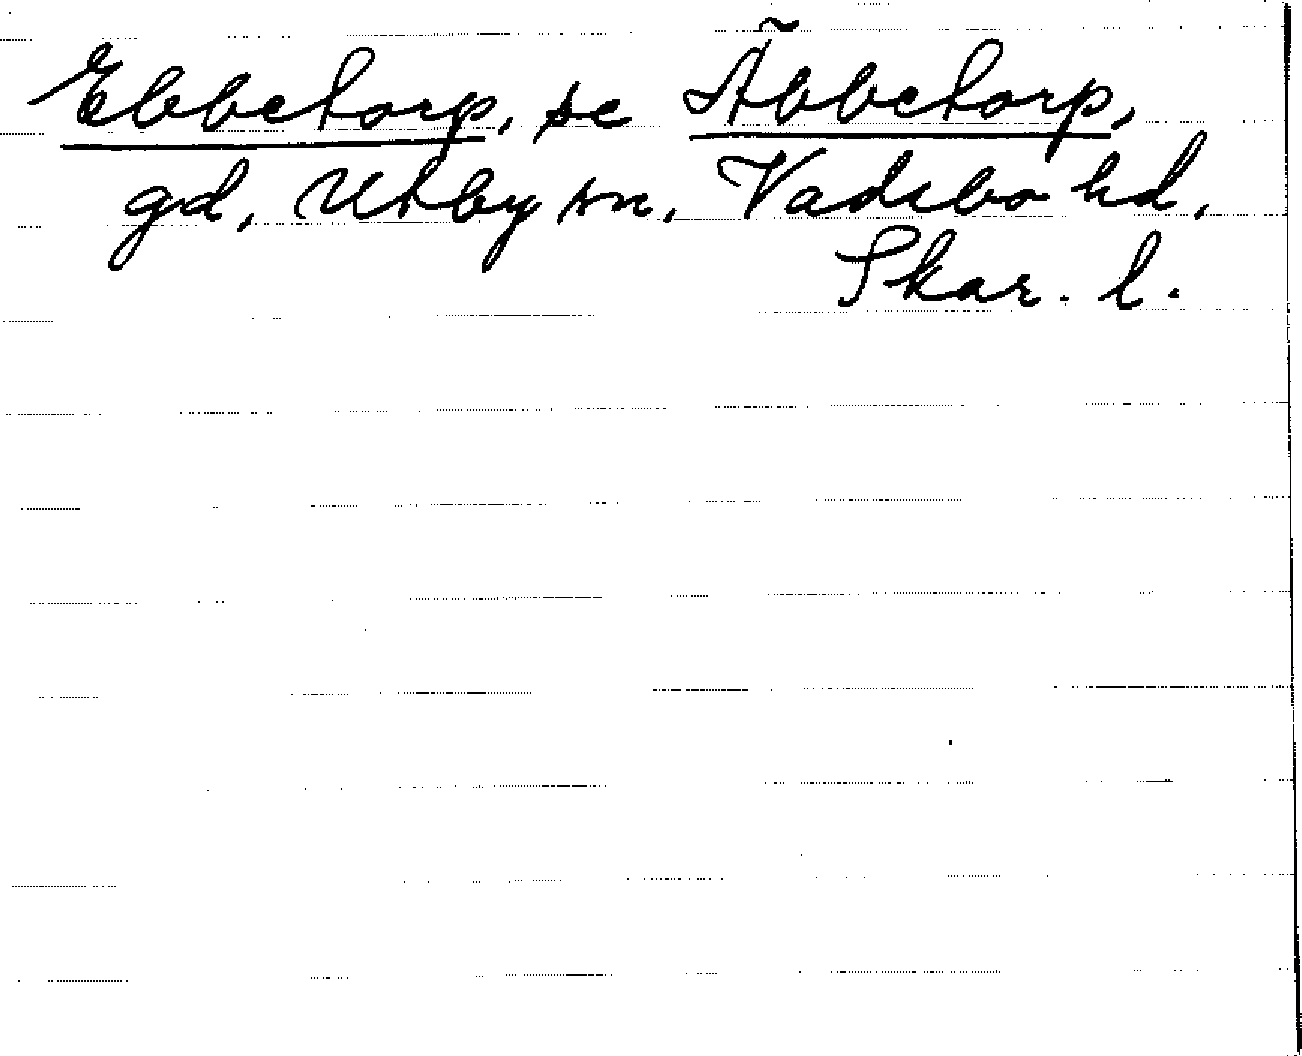 Ebbetorp, se Äbbetorp,
gd, Utby sn, Vadsbo hd,
Skar. l.